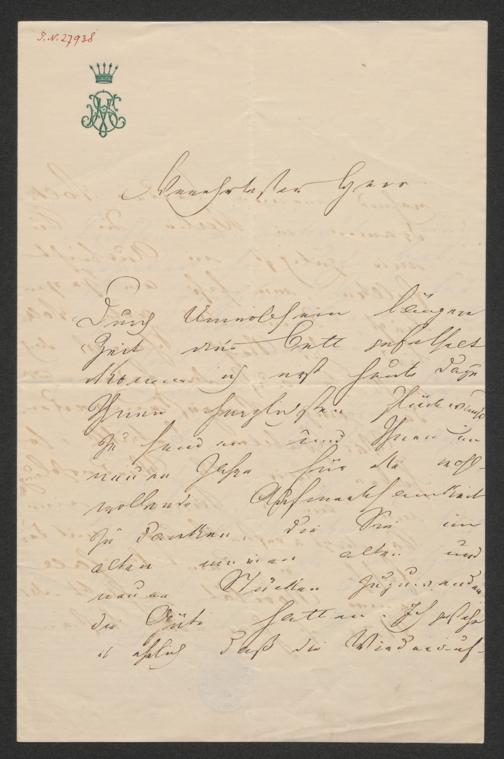 I.N. 27938
Verehrtester Herr
Durch Unwohlsein längere
Zeit ans Bett gefesselt
komme ich erst heute dazu
Ihnen herzlichsten Glückwunsch
zu senden und Ihnen im
neuen Jahre für die wohl-
wollende Aufmerksamkeit
zu danken, die Sie im
alten meinen alten und
neuen Stücken zuzuwenden
die Güte hatten. Ich gestehe
ehrlich daß die Wiederauf-